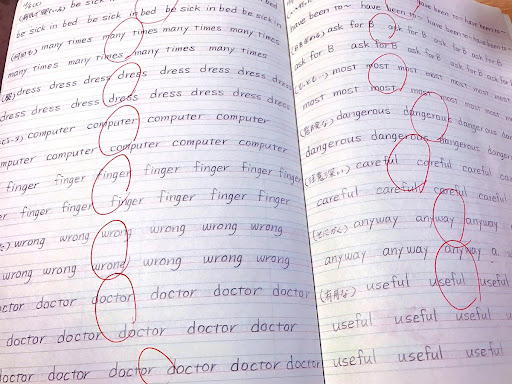 be sick in bed be sick in be
be sick in bed be sick in
many times many times many times
many times many times many times many times
(服) dress dress dress dress dress dress dress dress
dress dress dress dress dress dress dress dress
computer computer computer computer
computer computer computer computer
finger finger finger finger finger finger finger
finger finger finger finger finger finger finger
wrong wrong wrong wrong wrong wrong
wrong wrong wrong wrong wrong wrong
doctor doctor doctor doctor doctor doctor
doctor doctor doctor doctor doctor
doctor doctor doctor doctor doctor doctor doctor
have been to
have been to〜 have been to〜 have been to〜
ask for B ask for B ask for B ask for
ask for B ask for B ask for B ask for B
most most most most most most
most most most most most most
(危険な) dangerous dangerous dangerous
dangerous dangerous dangerous
(注意深い) careful careful careful
careful careful careful careful
(とにかく) anyway anyway anyway
anyway anyway anyway
(有用な) useful useful useful
useful useful useful
useful useful useful